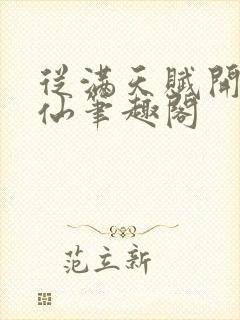 從滿天賦開
仙筆趣閣
范立新